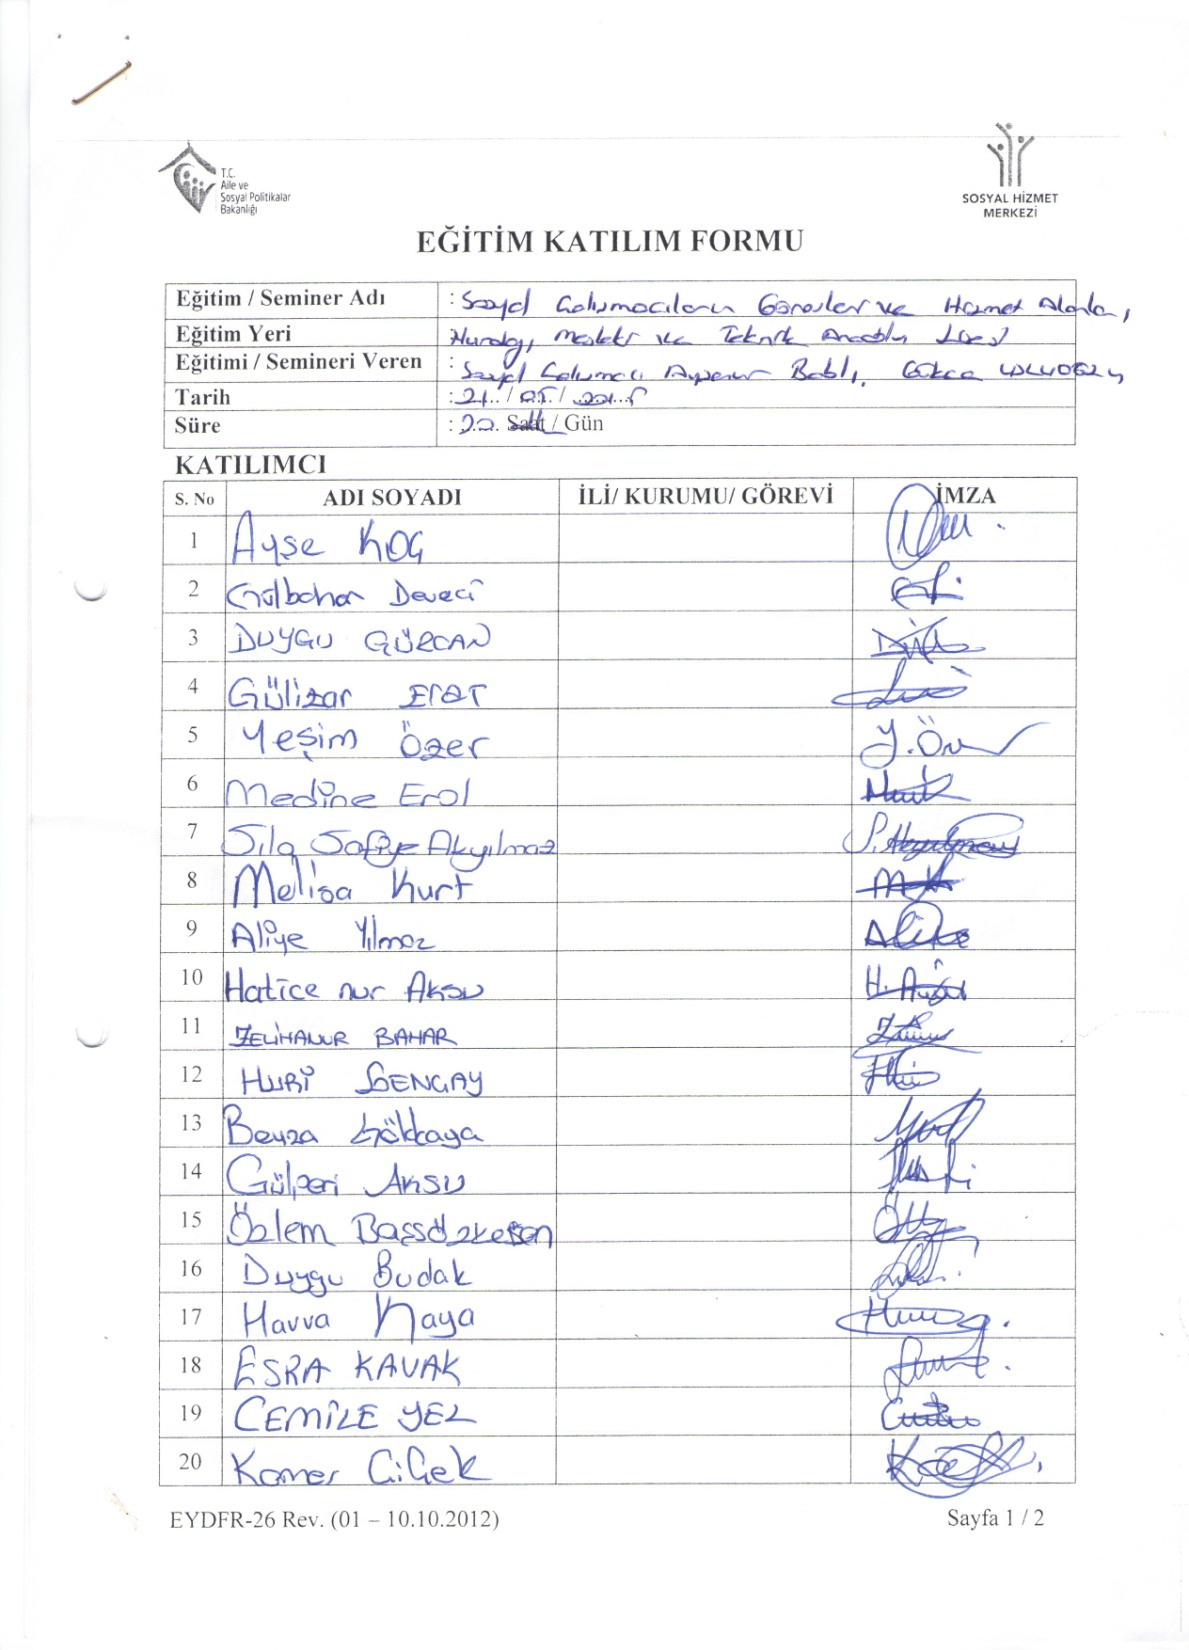 T.C.
Aile ve
Sosyal Politikalar
Bakanlığı
SOSYAL HİZMET
MERKEZİ
EĞİTİM KATILIM FORMU
Eğitim / Seminer Adı : Sosyal Çalışmacıların Görevleri ve Hizmet Alanları
Eğitim Yeri Meslekî ve Teknik Anadolu Lisesi
Eğitimi / Semineri Veren : Sosyal Çalışmacı Ayşenur Gökçe
Tarih : 21.. / 05. /
Süre : Saat / Gün
KATILIMCI
S. No ADI SOYADI İLİ/ KURUMU/ GÖREVİ İMZA
1 Ayşe KOÇ
2 Gülbahar Deveci
3 DUYGU GÜRCAN
4 Gülizar
5 Yeşim Özer Y.
6 Medine Erol
7 Sıla Safiye Akyılmaz
8 Melisa Kurt
9 Aliye Yılmaz
10 Hatice nur Aksu
11 ZELİHANUR BAHAR
12 HURİ
13 Beyza Gökkaya
14 Gülperi Aksu
15 Özlem
16 Duygu Budak
17 Havva Kaya
18 ESRA KAVAK
19 CEMİLE YEL
20 Kamer Çiçek
EYDFR-26 Rev. (01 – 10.10.2012) Sayfa 1 / 2